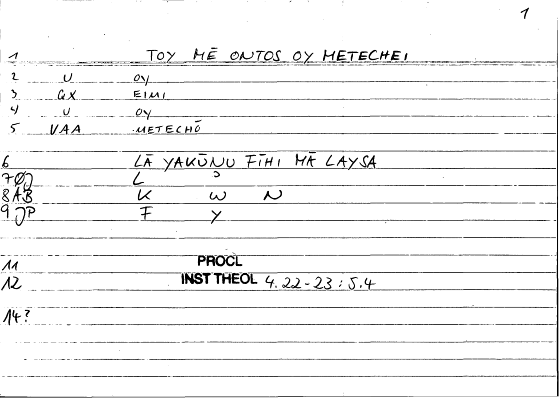 1
1 TOY MĒ ONTOS OY METECHEI
2 U OY
3 GX EIMI
4 U OY
5 VAA METECHŌ
6 LĀ YAKŪNU FĪHI MĀ LAYSA
7 L
8 AB K W N
9 P F Y
11 PROCL
12 INST THEOL 4.22-23 : 5.4
14?